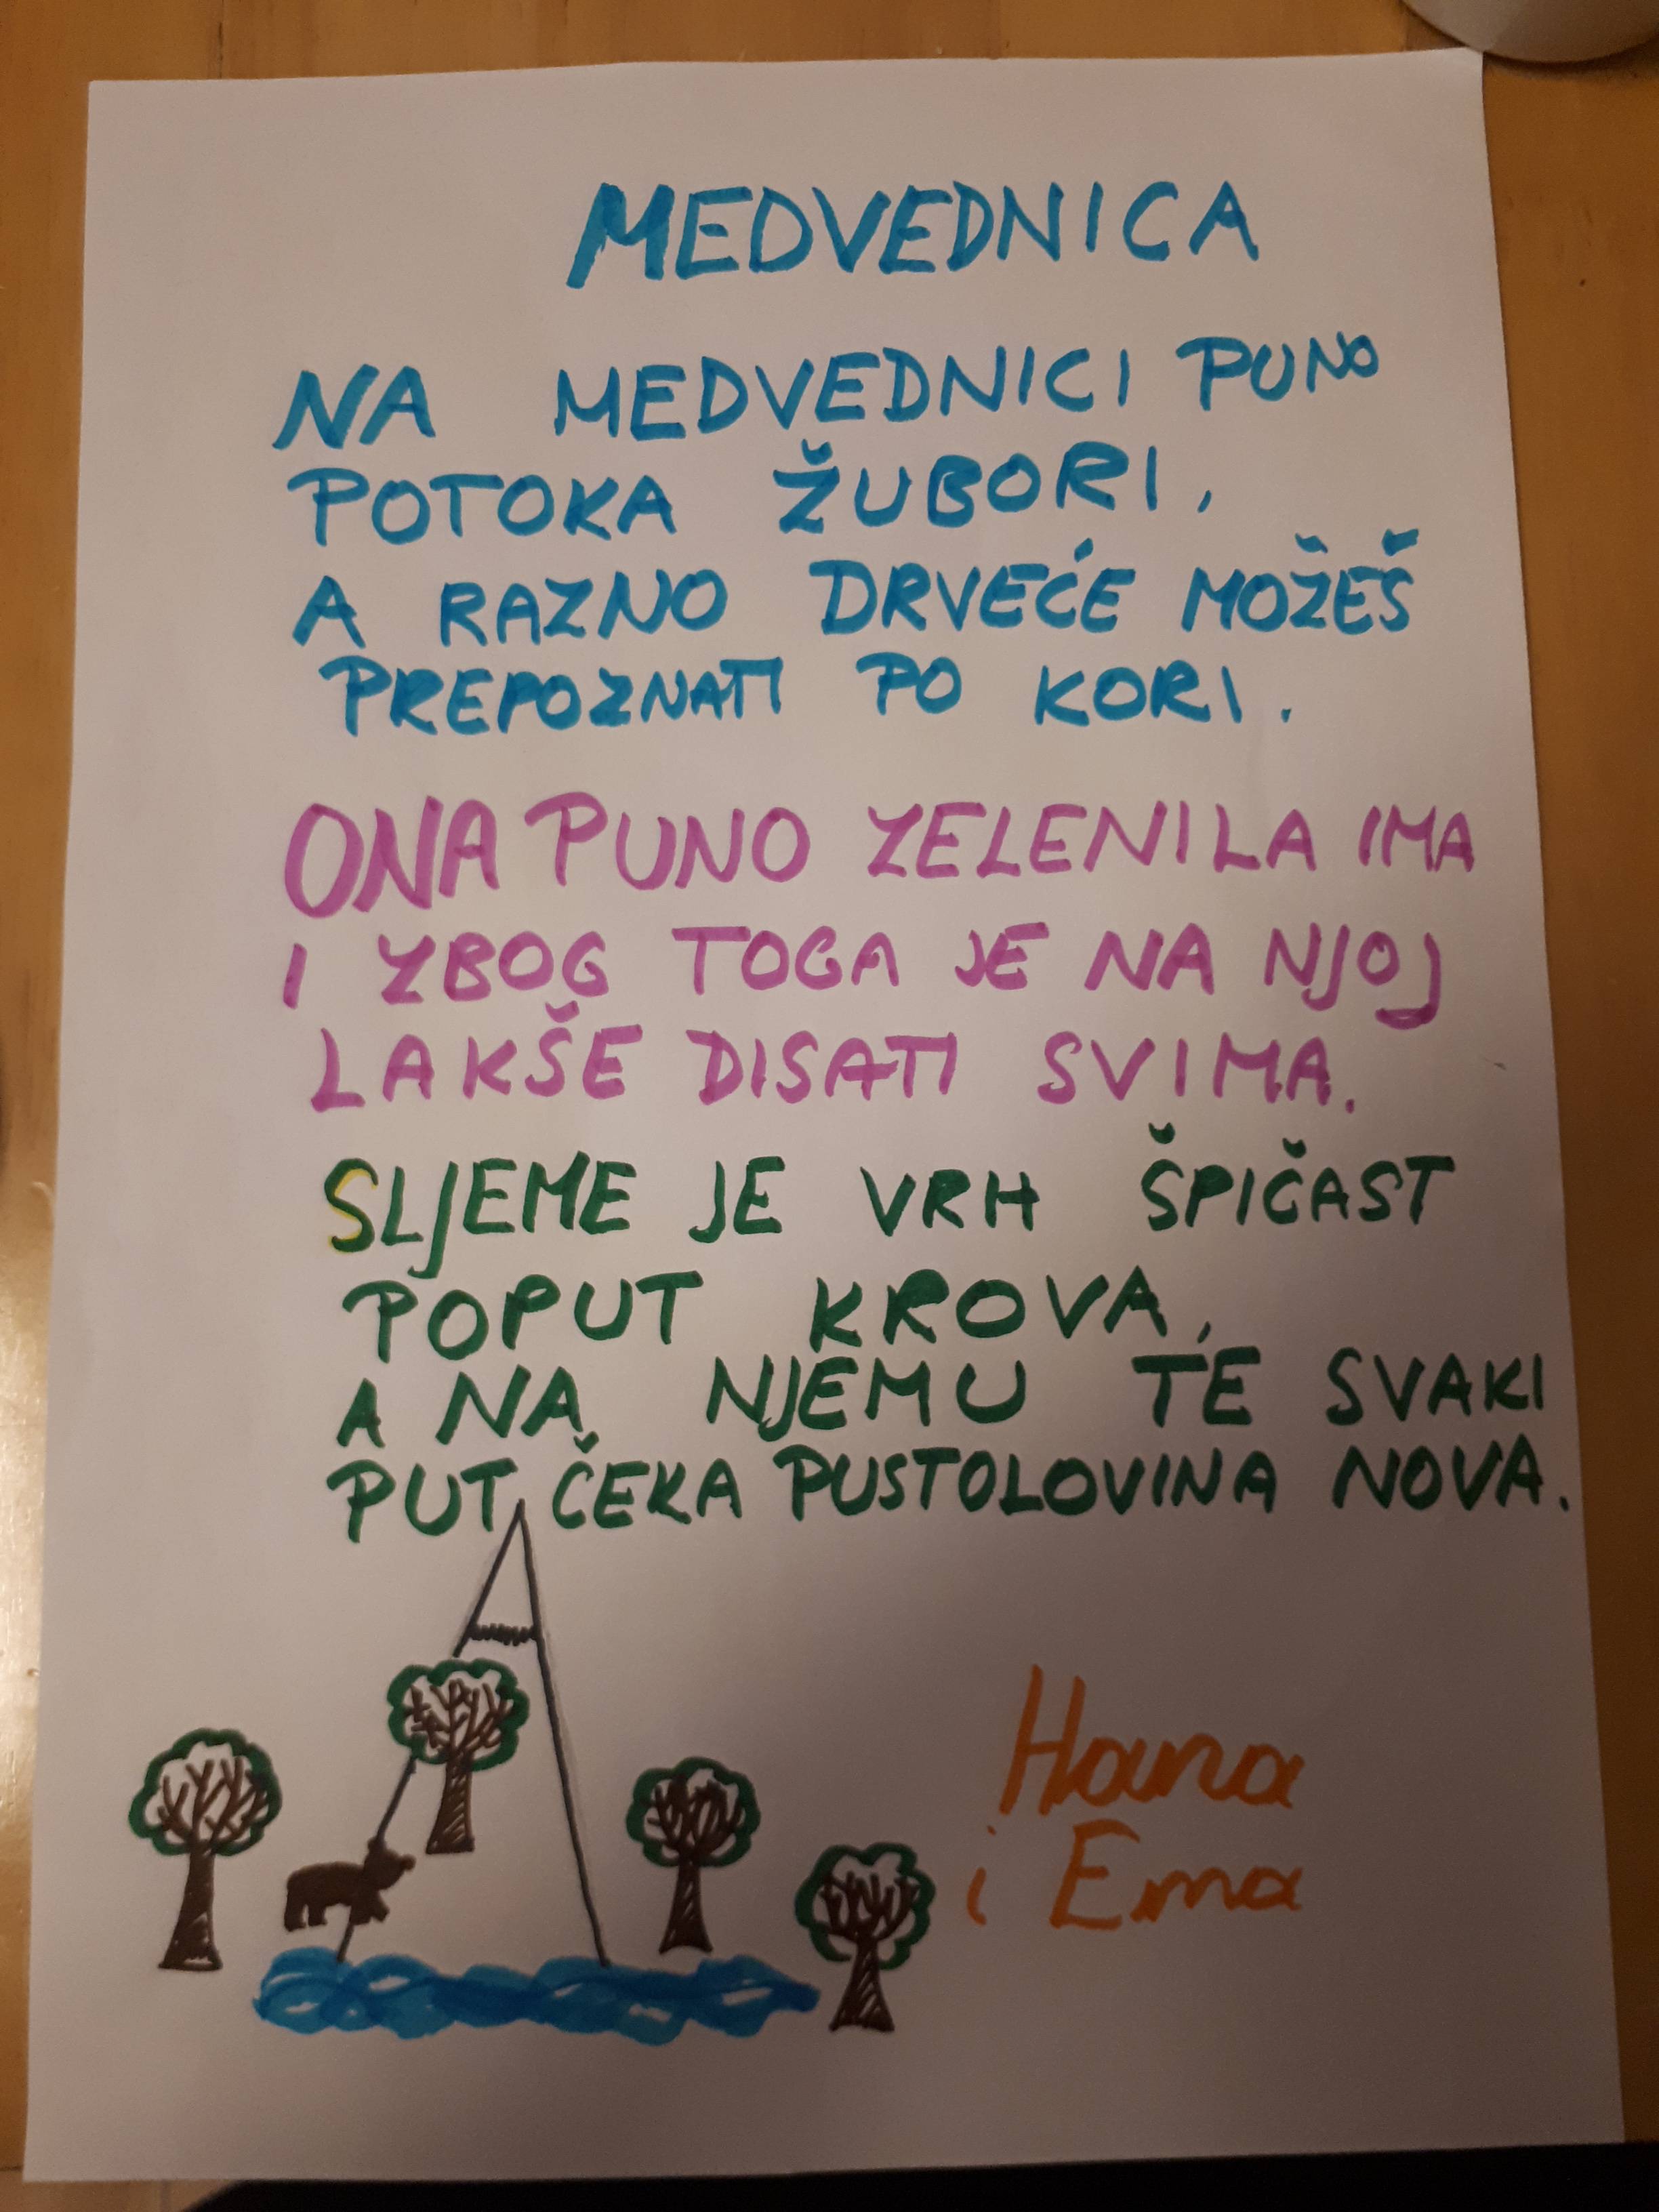 MEDVEDNICA
NA MEDVEDNICI PUNO
POTOKA ŽUBORI,
A RAZNO DRVEĆE MOŽEŠ
PREPOZNATI PO KORI.
ONA PUNO ZELENILA IMA
I ZBOG TOGA JE NA NJOJ
LAKŠE DISATI SVIMA.
SLJEME JE VRH ŠPIČAST
POPUT KROVA,
A NA NJEMU TE SVAKI
PUT ČEKA PUSTOLOVINA NOVA.
Hana
i Ema